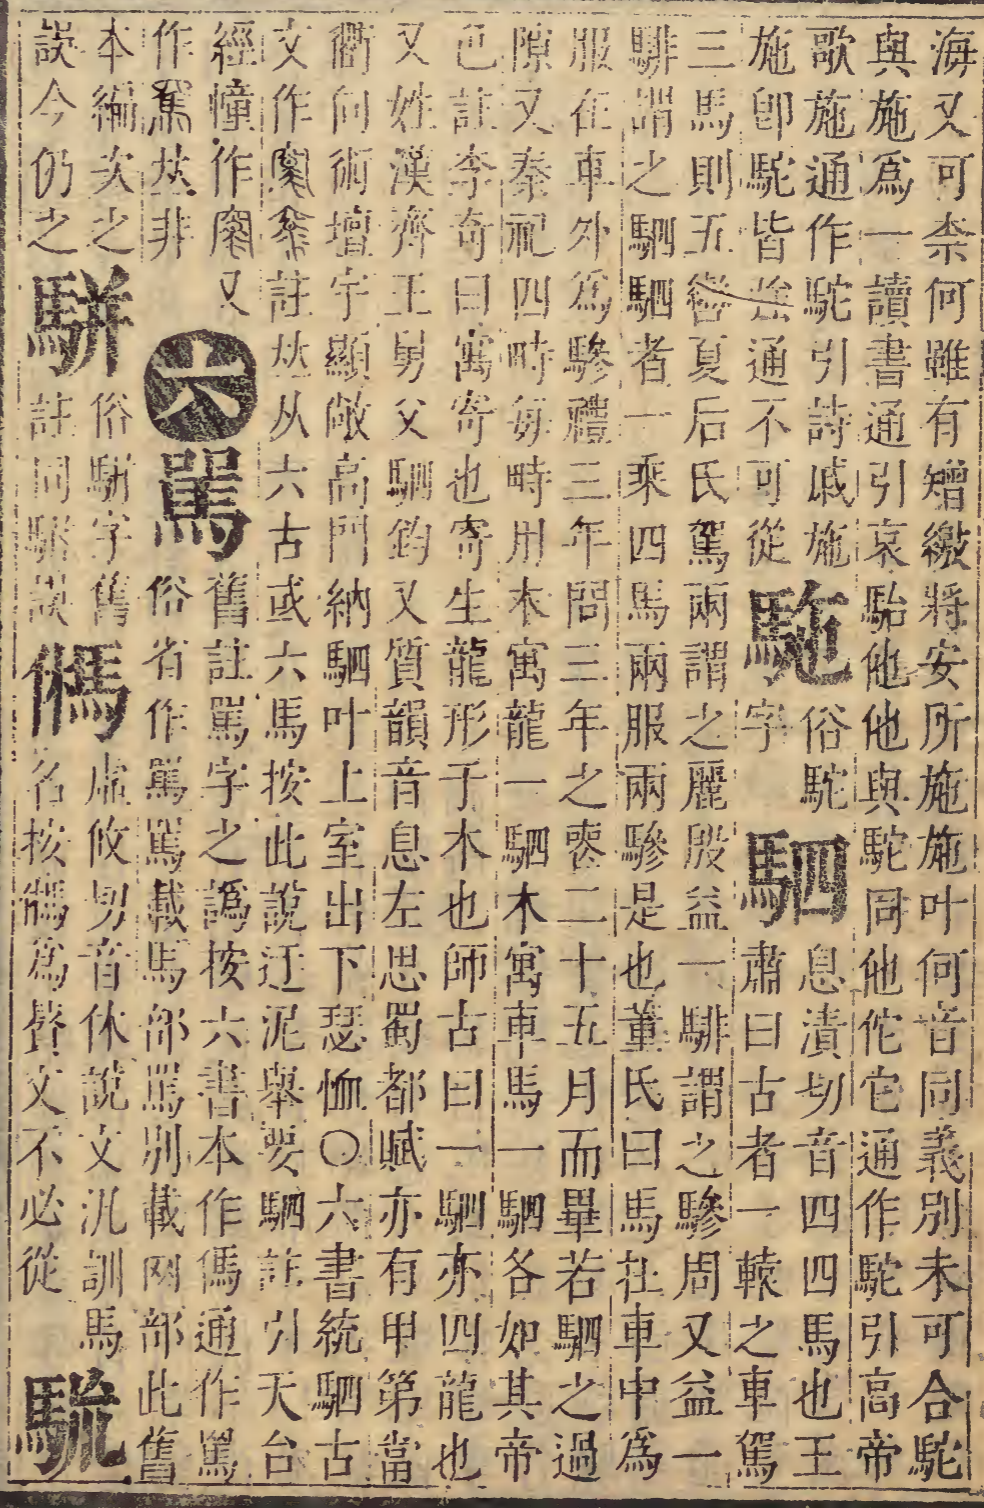 海又可柰何雖有矰繳將安所施施叶何音同義別未可合駝
與施爲一讀書通引哀駘他他與駝同他佗它通作駝引高帝
歌施通作駝引詩戚施
施卽駝皆 通不可從
駞
俗駝
字
駟
息漬切音四四馬也王
肅曰古者一轅之車駕
三馬則五轡夏后氏駕兩謂之麗殷益一騑謂之驂周又益一
騑謂之駟駟者一乘四馬兩服兩驂是也董氏曰馬在車中爲
服在車外爲驂禮三年問三年之喪二十五月而畢若駟之過
隙又秦祀四畤每畤用木寓龍一駟木寓車馬一駟各如其帝
色註李奇曰寓寄也寄生龍形于木也師古曰一駟亦四龍也
又姓漢齊王舅父駟鈞又質韻音息左思蜀都賦亦有甲第當
衢向術壇宇顯敞高門納駟叶上室出下瑟恤〇六書統駟古
文作 註𠀤从六古或六馬按此說迂泥舉要駟註引天台
經幢作 又
作駡𠀤非
六
駡
舊註罵字之譌按六書本作傌通作罵
俗省作罵罵載馬部罵別載网部此舊
本編次之
誤今仍之
駢
俗駢字舊
註同 誤
𩦡
虛攸切音休說文汎訓馬
名按 爲聱文不必從
駹